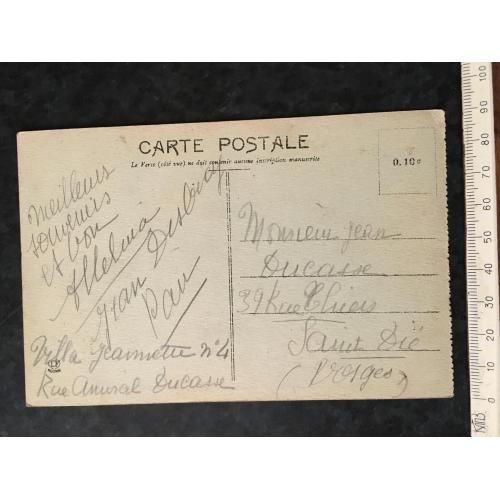 CARTE POSTALE
Le Verso (côté vue) ne doit contenir aucune inscription manuscrite
0.10c
Meilleurs
souvenirs
et bon
Alleluia
Jean
Pau
Villa Jeannette n°4
Rue Amiral Ducasse
Monsieur Jean
Ducasse
39 Rue Thiers
Saint Dié
(Vosges)
100
90
80
70
60
50
40
30
20
10
0